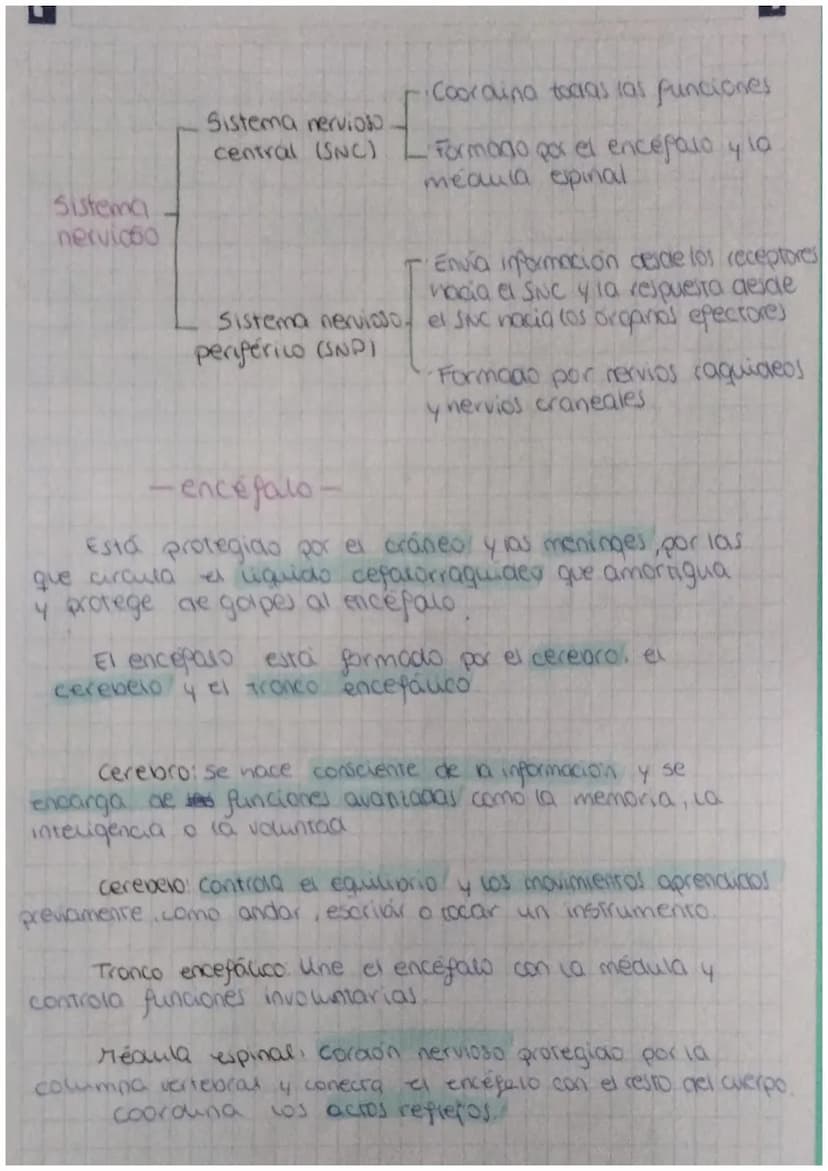 Sistema nervioso
Sistema nervioso
central (SNC)
· Coordina todas las funciones
· Formado por el encéfalo y la
médula espinal
Sistema nervioso
periférico (SNP)
· Envía información desde los receptores
hacia el SNC y la respuesta desde
el SNC hacia los órganos efectores
· Formado por nervios raquídeos
y nervios craneales
— encéfalo —
Está protegido por el cráneo y las meninges, por las
que circula el líquido cefalorraquídeo que amortigua
y protege de golpes al encéfalo.
El encéfalo está formado por el cerebro, el
cerebelo y el tronco encefálico
Cerebro: se hace consciente de la información y se
encarga de funciones avanzadas como la memoria, la
inteligencia o la voluntad
Cerebelo: controla el equilibrio y los movimientos aprendidos
previamente, como andar, escribir o tocar un instrumento.
Tronco encefálico: Une el encéfalo con la médula y
controla funciones involuntarias.
Médula espinal: cordón nervioso protegido por la
columna vertebral y conecta el encéfalo con el resto del cuerpo.
coordina los actos reflejos.